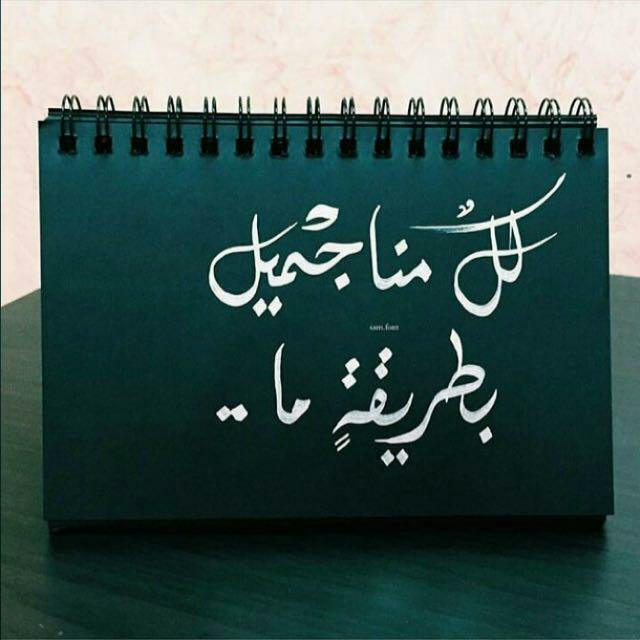 كلٌ منا جميل
sam.font
بطريقةٍ ما ..